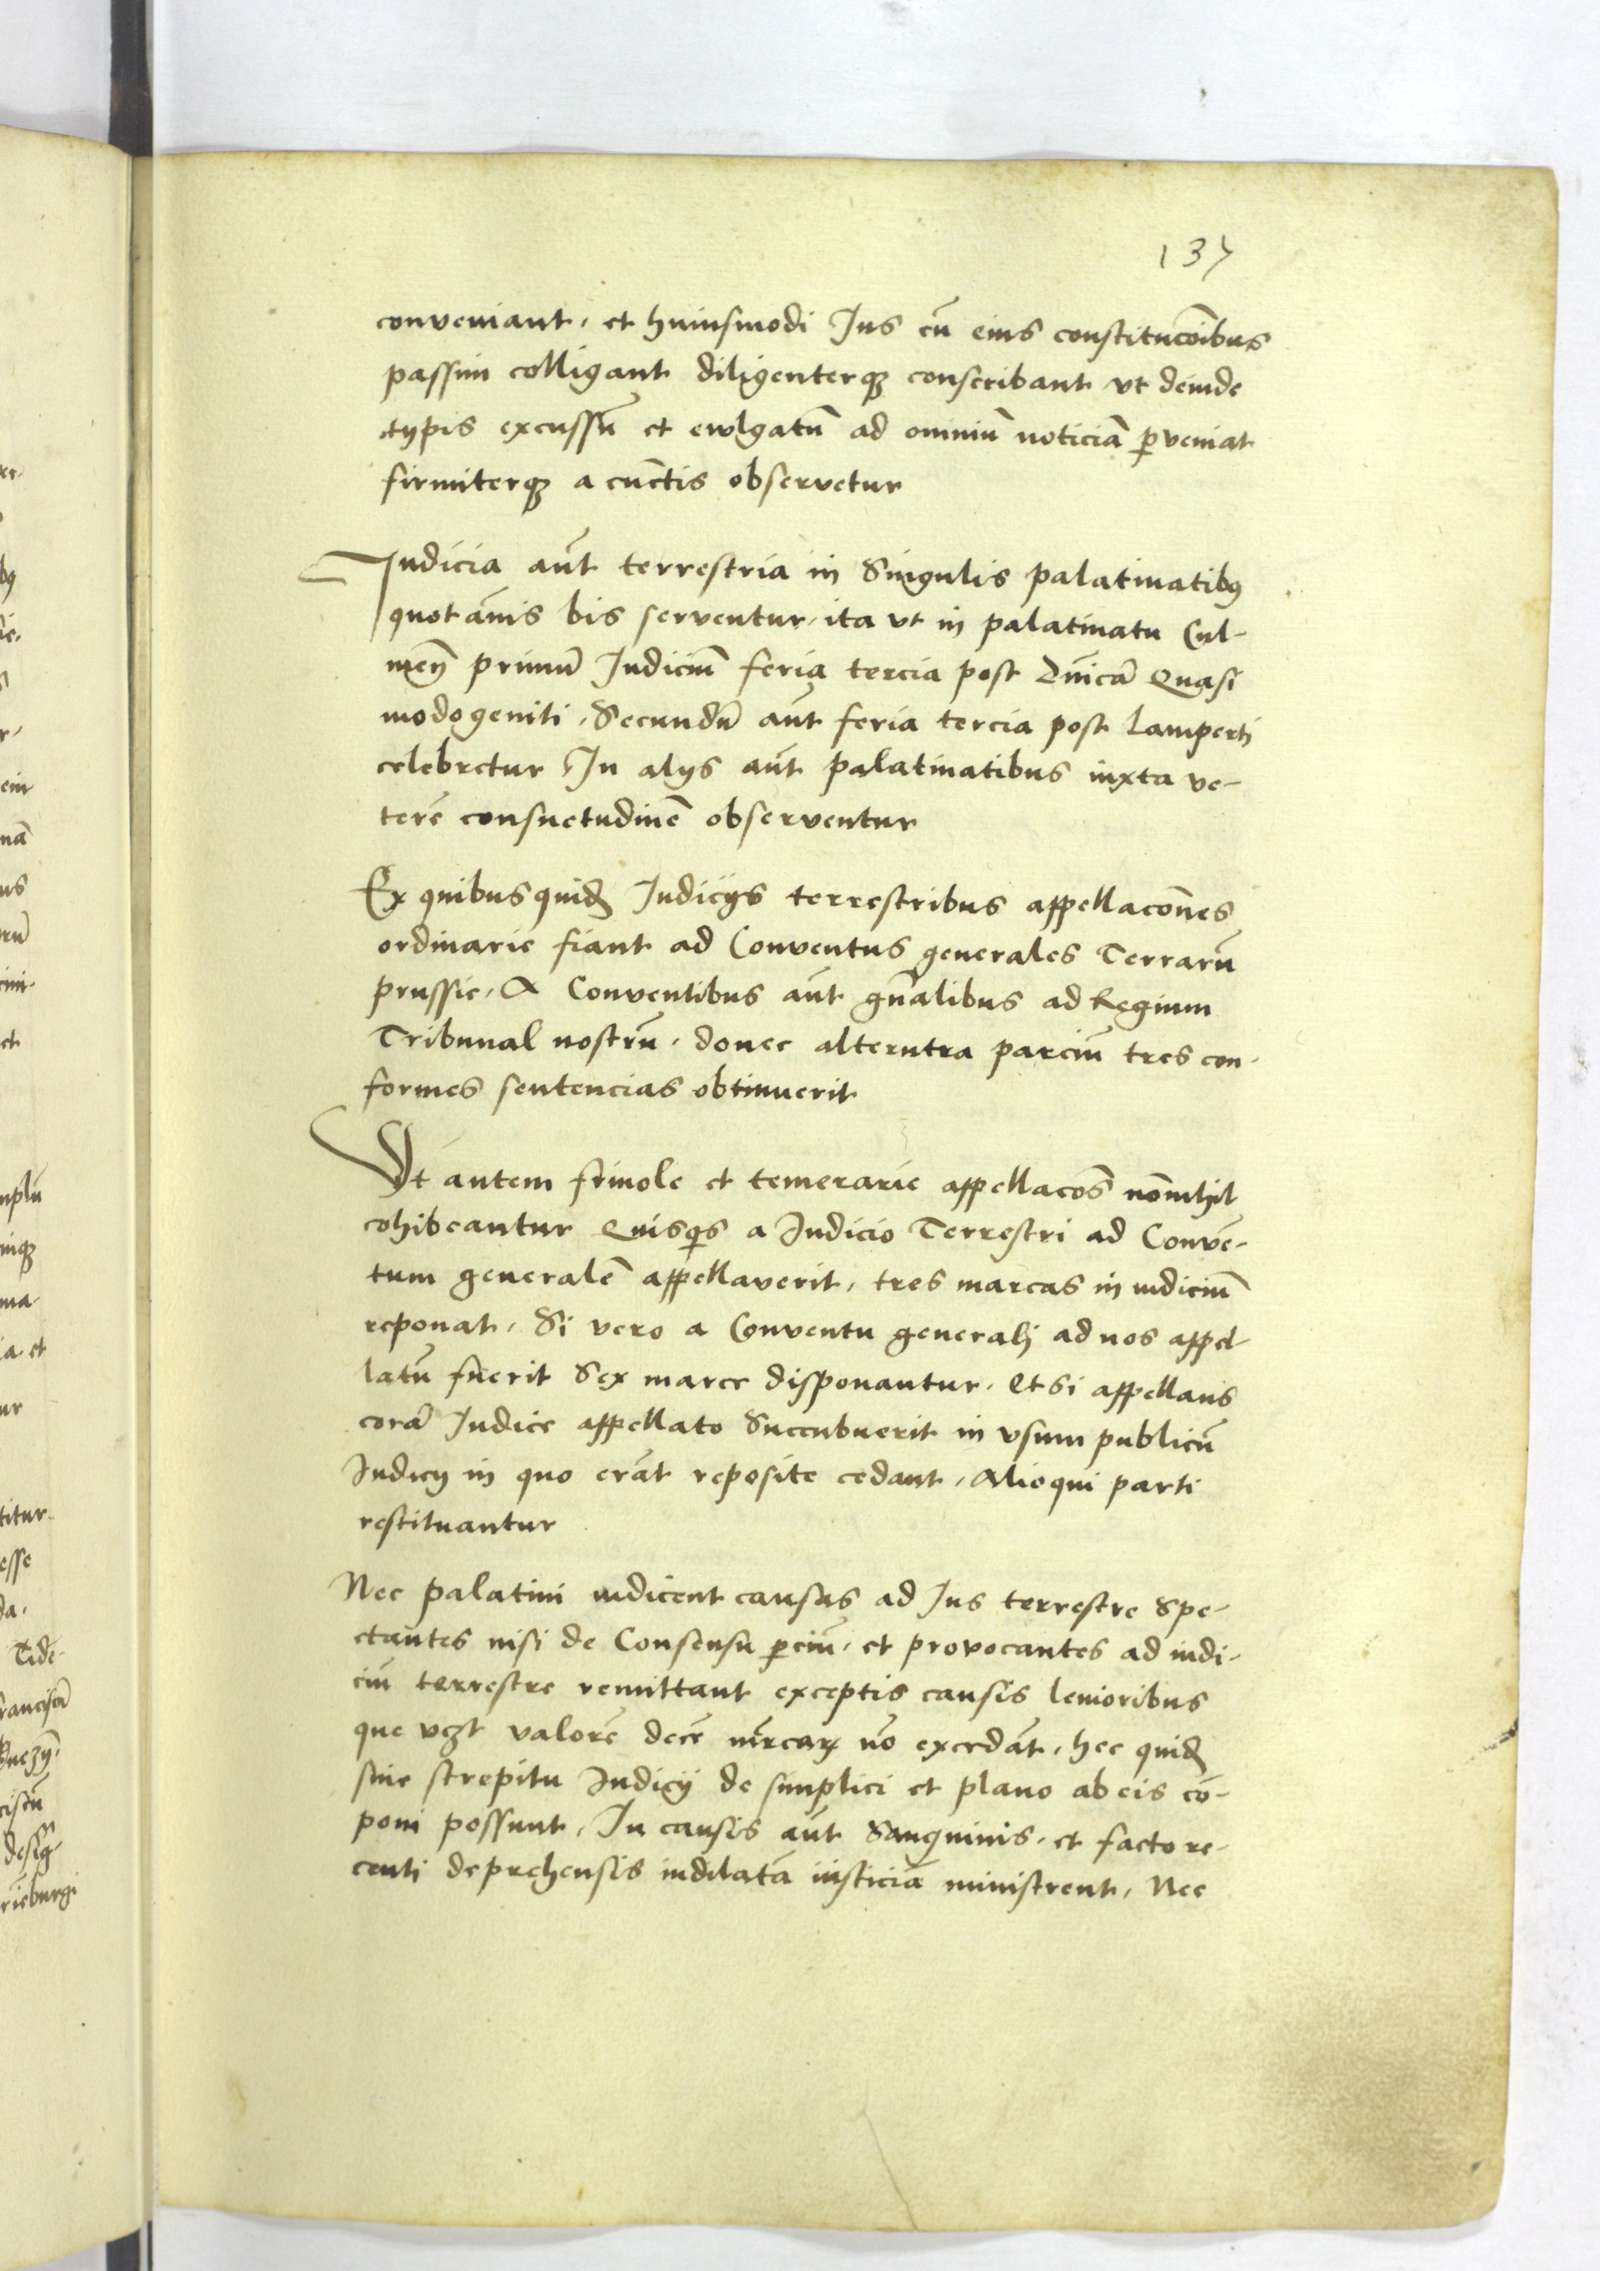 137
conveniant, et huiusmodi Jus cũ eius constitucõibus
passim colligant diligenterq́ʒ conscribant vt deinde
typis excussũ et evulgatũ ad omniũ noticiã ꝑveniat
firmiterqʒ a cunctis observetur
Judicia aũt terrestria in Singulis palatinatibꝰ
quot añis bis serventur, ita vt in palatinatu Cul-
meñ primũ Judiciũ feria tercia post Dñicã Quasi
modogeniti, Secundũ aũt feria tercia post Lamperti
celebretur In alijs aũt palatinatibus iuxta ve-
terẽ consuetudinẽ observentur
Ex quibus quidẽ Judicijs terrestribus appellacões
ordinarie fiant ad Conventus generales Terrarũ
prussie, A Conventibus aũt gñalibus ad Regium
Tribunal nostrũ, donec alterutra parciũ tres con-
formes sentencias obtinuerit
Ut autem frivole et temerarie appellacões nõnihil
cohibeantur Quisqͥs a Judicio Terrestri ad Convẽ-
tum generalẽ appellaverit, tres marcas in iudiciũ
reponat, Si vero a Conventu generali ad nos appel-
latũ fuerit Sex marce disponantur, Et si appellans
corã Judice appellato Succubuerit in vsum publicũ
Judicij in quo erãt reposite cedant, Alioqui parti
restituantur
Nec palatini iudicent causas ad Jus terrestre Spe-
ctantes nisi de Consensu ꝑciũ, et provocantes ad iudi-
ciũ terrestre remittant exceptis causis levioribus
que vcʒt valorẽ decẽ marcaꝝ nõ excedãt, hec quidẽ
sine strepitu Judicij de simplici et plano ab eis cõ-
poni possunt, In causis aũt Sanguinis, et facto re-
centi deprehensis indilatã iusticiã ministrent, Nec